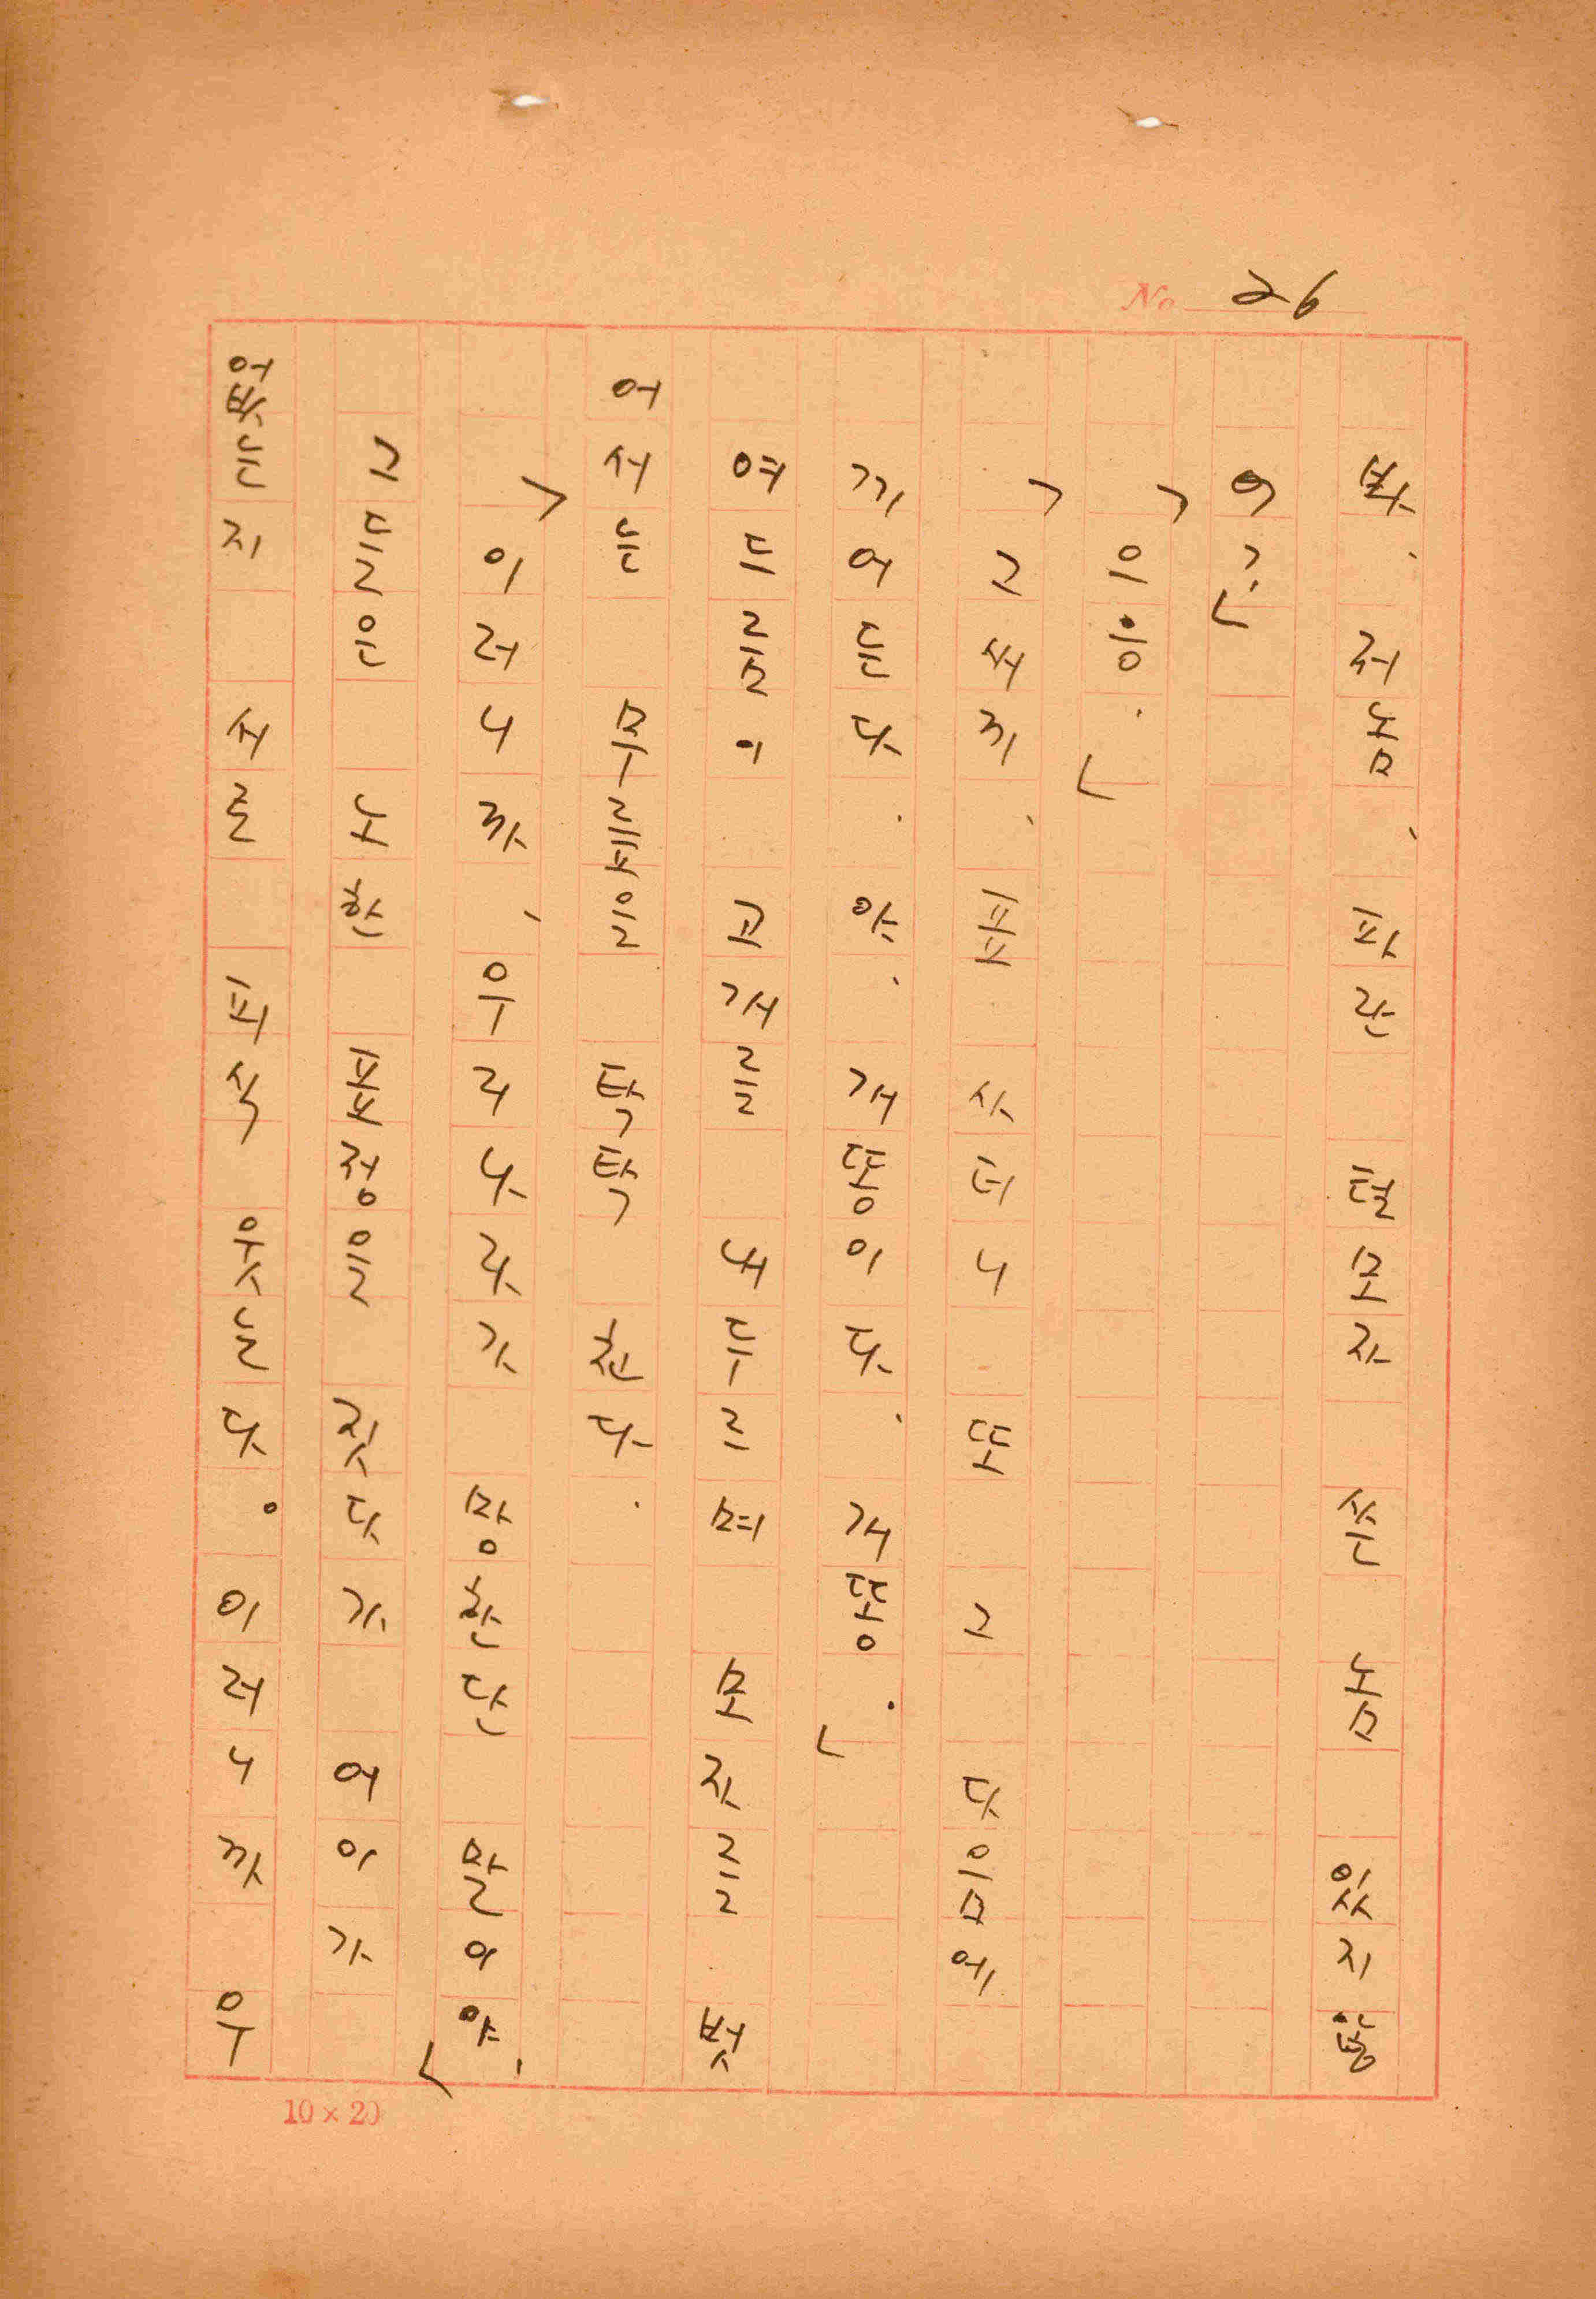 No. 26
봐. 저놈, 파란 털모자 쓴 놈 있지 않
어?」
「으응.」
「그 새끼, 표 사더니 또 그 다음에
끼어든다. 야. 개똥이다. 개똥.」
여드름이 고개를 내두르며 모자를 벗
어서는 무릎을 탁탁 친다.
「이러니까, 우리나라가 망한단 말이야.」
그들은 노한 표정을 짓다가 어이가
없는지 서로 피식 웃는다. 이러니까 우
10×20